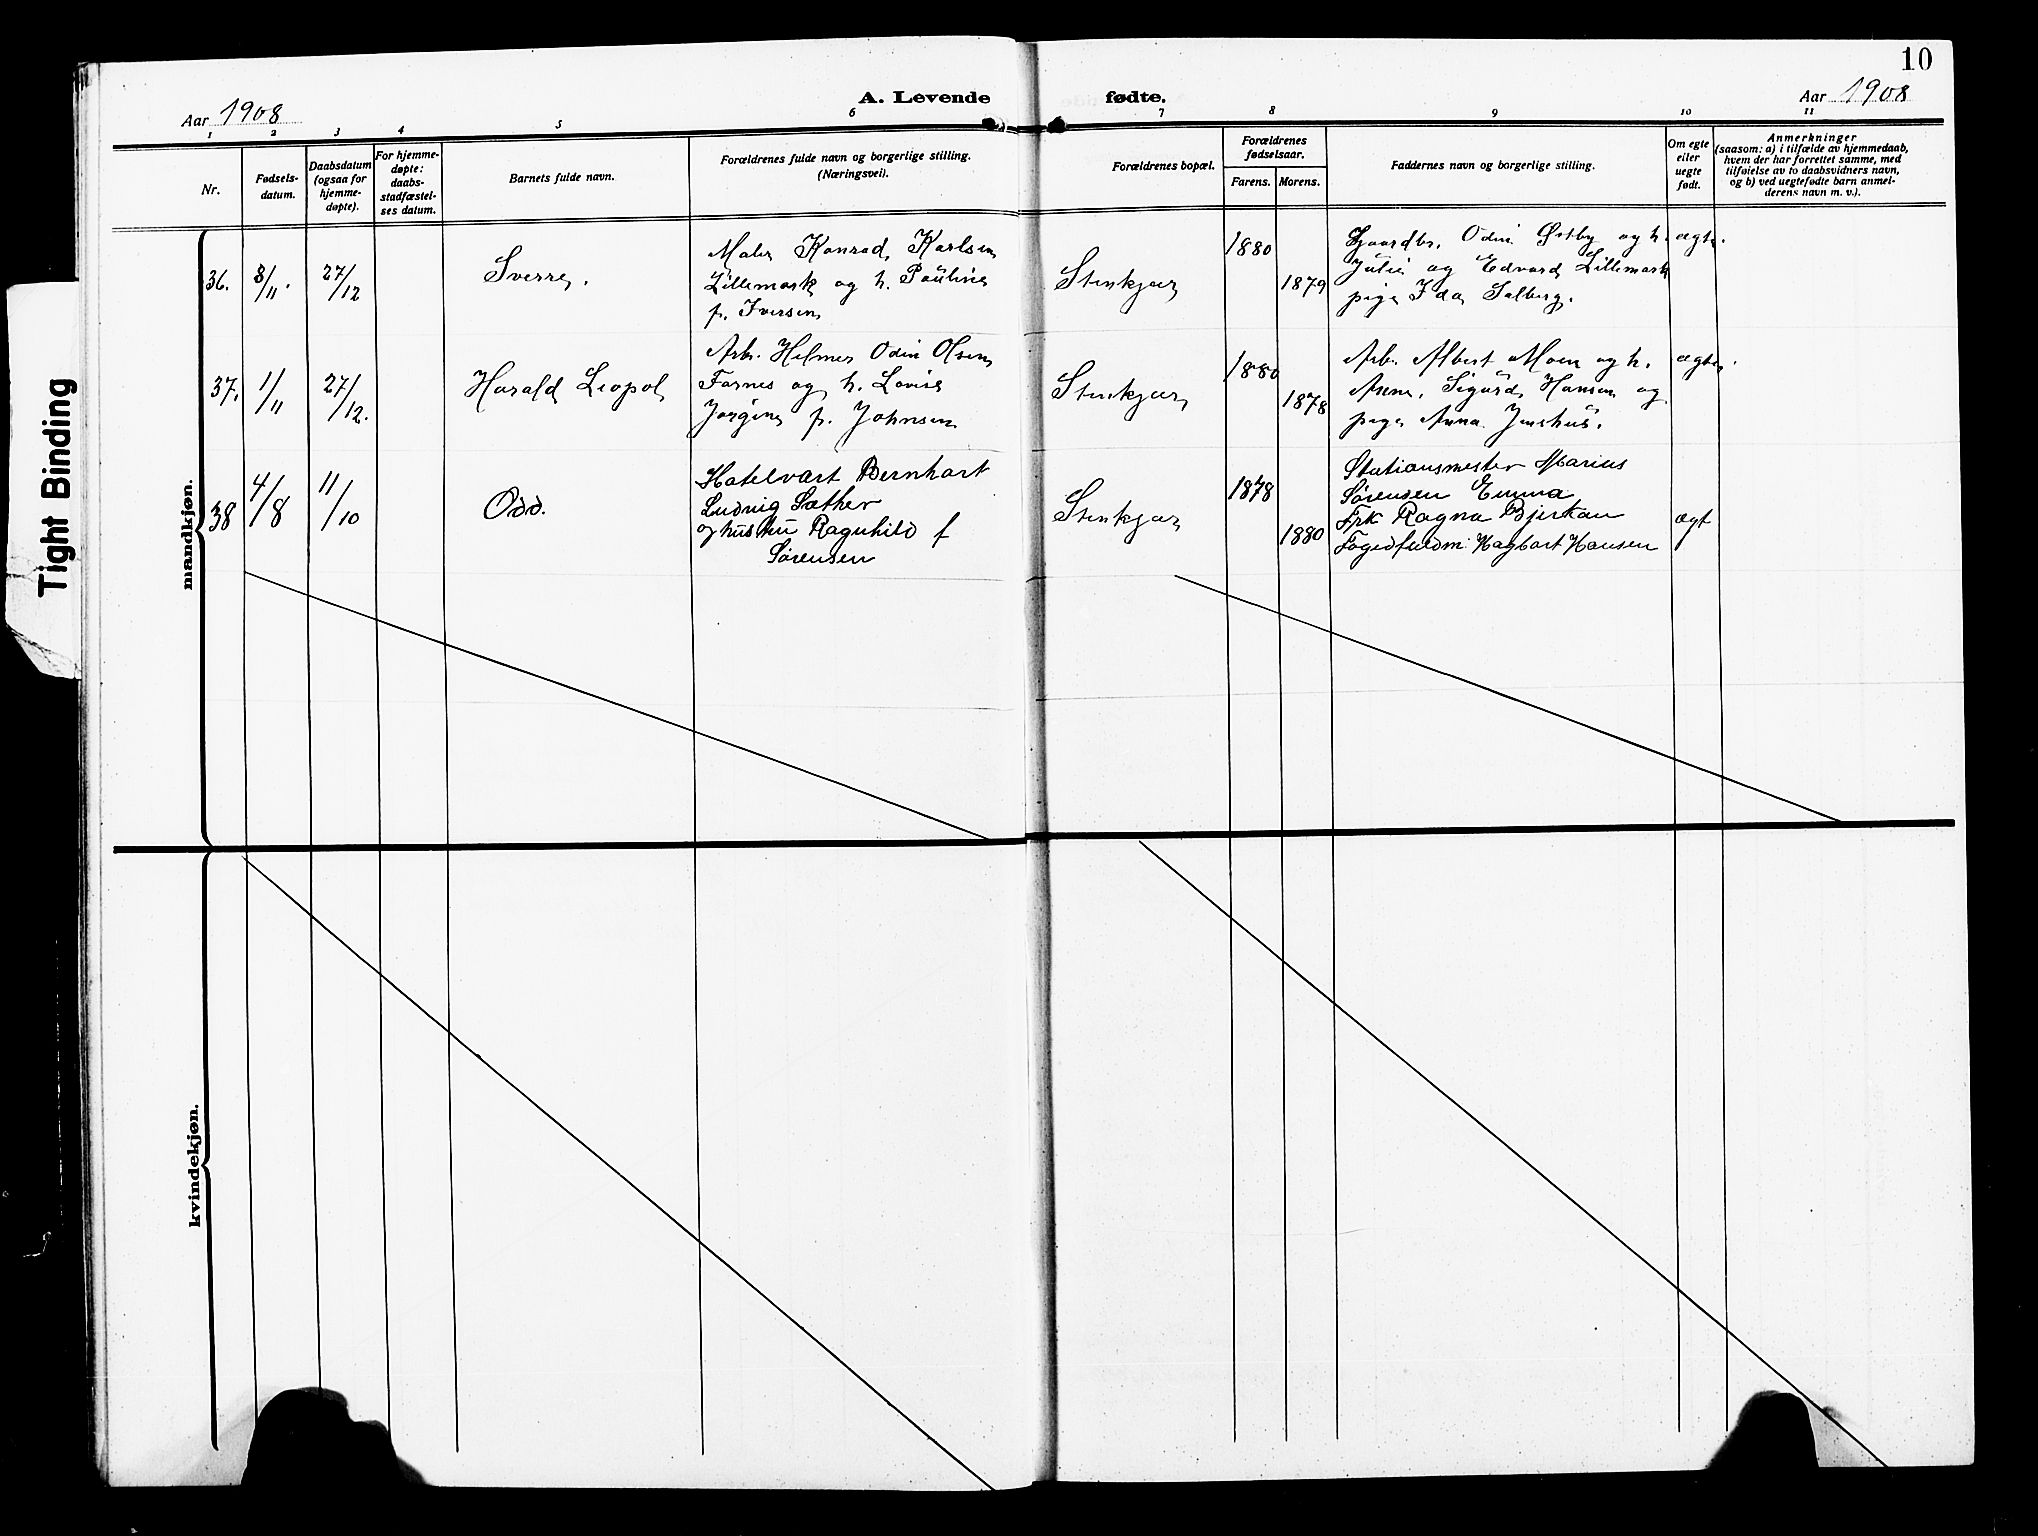 10
Aar 1908
A. Levende fødte.
Aar 1908
1 2 3 4 5 6 7 8 9 10 11
Nr.
Fødsels-
datum.
Daabsdatum
(ogsaa for
hjemme-
døpte).
For hjemme-
døpte:
daabs-
stadfæstel-
ses datum.
Barnets fulde navn.
Forældrenes fulde navn og borgerlige stilling.
(Næringsvei).
Forældrenes bopæl.
Forældrenes
fødselsaar.
Farens. Morens.
Faddernes navn og borgerlige stilling.
Om egte
eller
uegte
født.
Anmerkninger
(saasom: a) i tilfælde av hjemmedaab,
hvem der har forrettet samme, med
tilføielse av to daabsvidners navn,
og b) ved uegtefødte barn anmel-
derens navn m. v.).
Tight Binding
mandkjøn.
36.
8/11.
27/12
Sverre.
Maler Konrad Karlsen
Lillemark og h. Pauline
f. Iversen
Stenkjær
1880
1879
Gaardbr. Odin Østby og h.
Julie og Edvard Lillemark
pige Ida Salberg.
ægte.
37.
1/11
27/12.
Harald Leopol
Arb. Hilmer Odin Olsen
Farnes og h. Lovise
Jørgine f. Johnsen
Stenkjær
1880
1878
Arb. Albert Moen og h.
Anna, Sigurd Hansen og
pige Anna Jenshus.
ægte.
38
4/8
11/10
Odd.
Hotelvært Bernhart
Ludvig Sæther
og hustru Ragnhild f
Sørensen
Stenkjær
1878
1880
Stationsmester Marius
Sørensen Emma
Frk Ragna Bjerkan
Fogedfuldm: Hagbart Hansen
ægt
kvindekjøn.